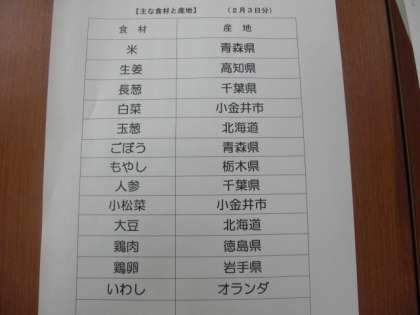 【主な食材と産地】 （２月３日分）
食材 産地
米 青森県
生姜 高知県
長葱 千葉県
白菜 小金井市
玉葱 北海道
ごぼう 青森県
もやし 栃木県
人参 千葉県
小松菜 小金井市
大豆 北海道
鶏肉 徳島県
鶏卵 岩手県
いわし オランダ